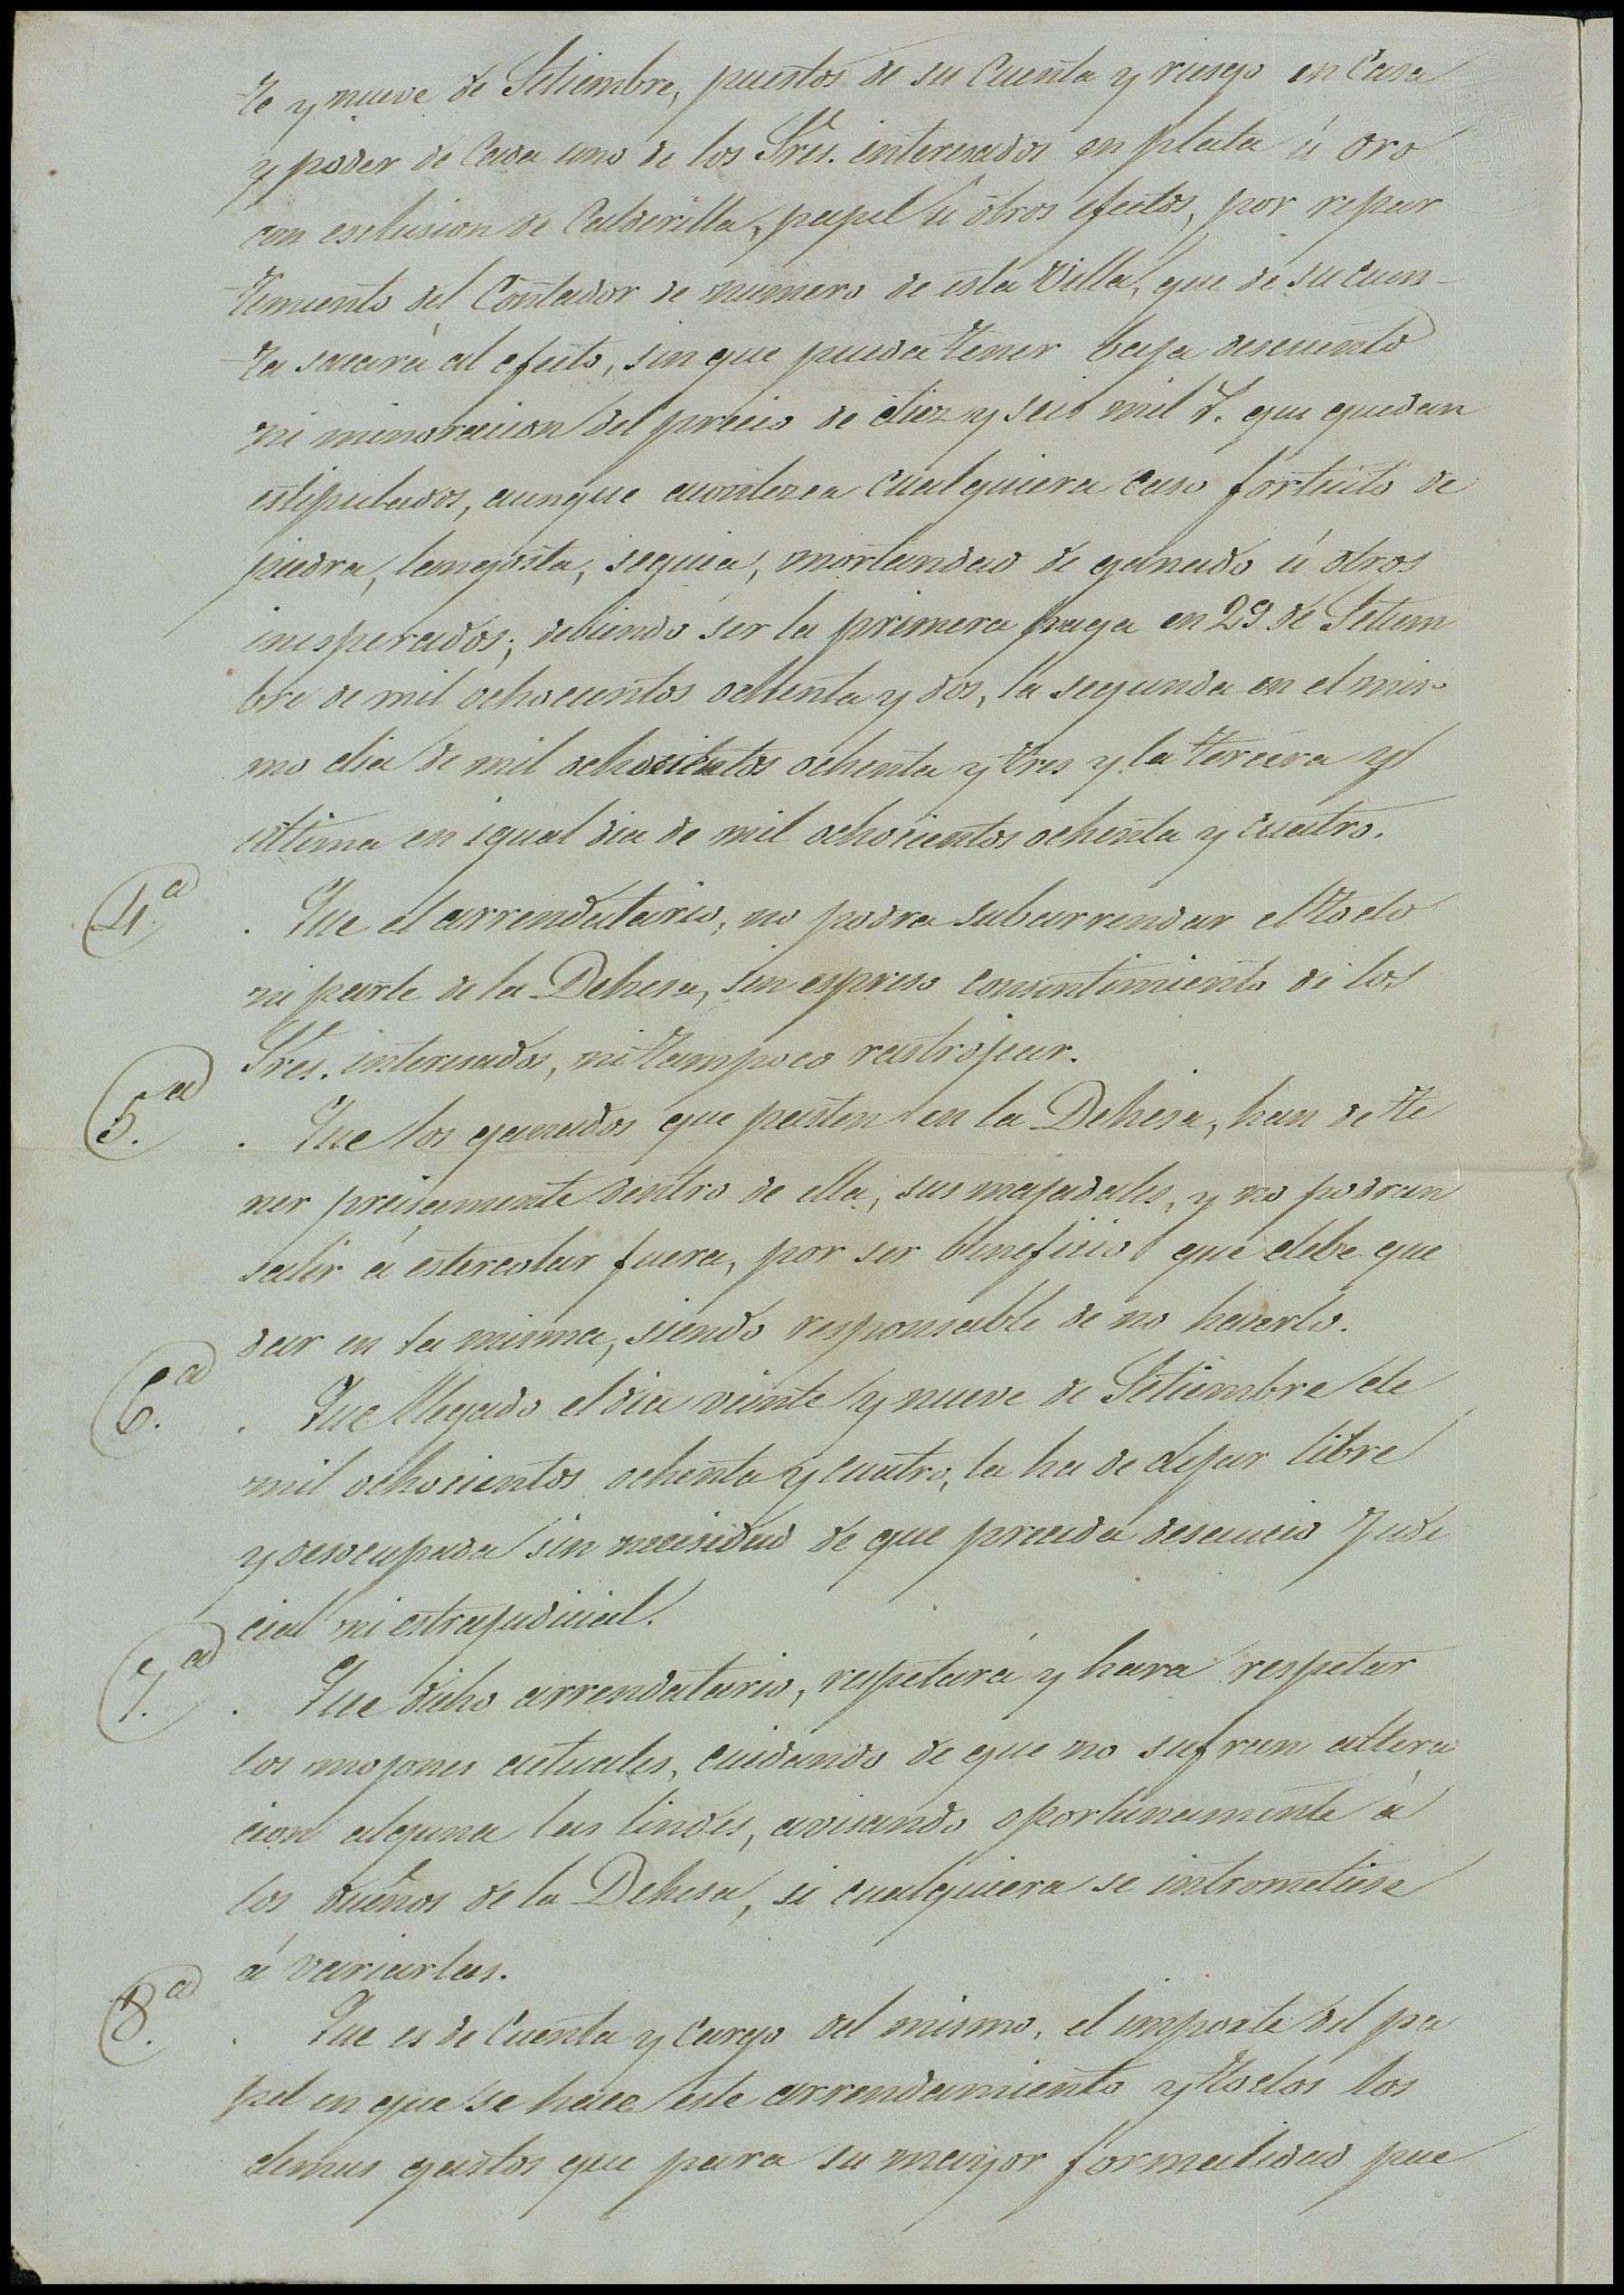 te y nueve de Setiembre, puestos de su Cuenta y riesgo en Casa
y poder de Cada uno de los Sres. interesados en plata ú oro
con esclusion de Calderilla, papel ú otros efectos, por repar
timiento del Contador de numero de esta Villa, que de su cuen-
ta sacará al efecto, sin que pueda tener baja descuento
ni minoracion del precio de diez y seis mil r. que quedan
estipulados, aunque acontezca cualquiera caso fortuito de
piedra, langosta, sequia, mortandad de ganado ú otros
inesperados; debiendo ser la primera paga en 29 de Setiem
bre de mil ochocientos ochenta y dos, la segunda en el mis
mo dia de mil ochocientos ochenta y tres y la tercera y
ultima en igual dia de mil ochocientos ochenta y cuatro.
4ª. Que el arrendatario, no podra subarrendar el todo
ni parte de la Dehesa, sin espreso consentimiento de los
Sres. interesados, ni tampoco rastrojear.
5.ª. Que los ganados que pasten en la Dehesa, han de te
ner precisamente dentro de ella, sus majadales, y no podran
salir á estercolar fuera, por ser beneficio que debe que
dar en la misma, siendo responsable de no hacerlo.
6.ª. Que llegado el dia veinte y nueve de Setiembre de
mil ochocientos ochenta y cuatro, la ha de dejar libre
y desocupada sin necesidad de que preceda desaucio Judi
cial ni estrajudicial.
7.ª. Que dicho arrendatario, respetará y hara respetar
los mojones actuales, cuidando de que no sufran altera
cion alguna las lindes, avisando oportunamente á
los dueños de la Dehesa, si cualquiera se intrometiese
á variarlas.
8.ª. Que es de Cuenta y Cargo del mismo, el importe del pa
pel en que se hace este arrendamiento y todos los
demas gastos que para su mayor formalidad pue